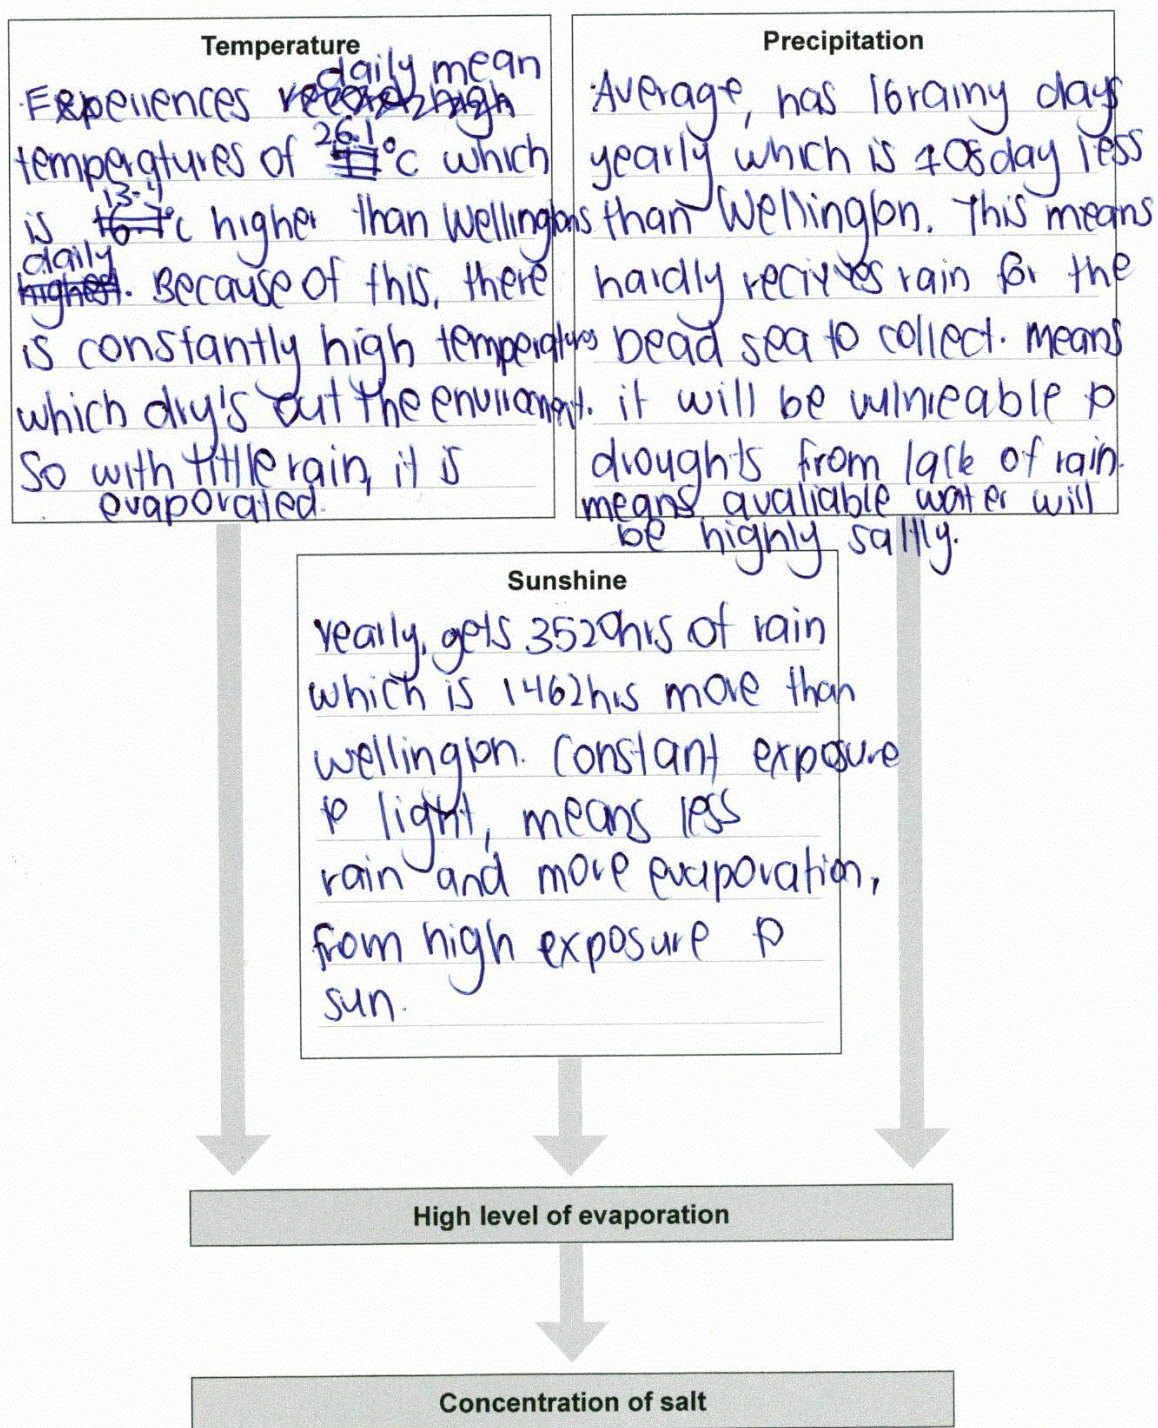 Temperature
daily mean
Experiences record high
temperatures of 26.1 °c which
is 13.4 °c higher than Wellingtons
daily
highest. Because of this, there
is constantly high temperatures
which dry's out the enviroment.
So with little rain, it is
evaporated.
Precipitation
Average, has 16 rainy days
yearly which is 108 day less
than Wellington. This means
hardly recives rain for the
Dead sea to collect. Means
it will be vulnreable to
droughts from lack of rain.
means avaliable water will
be highly saltly.
Sunshine
Yearly, gets 3520hrs of rain
which is 1462hrs more than
wellington. Constant exposure
to light, means less
rain and more evaporation,
from high exposure to
sun.
High level of evaporation
Concentration of salt